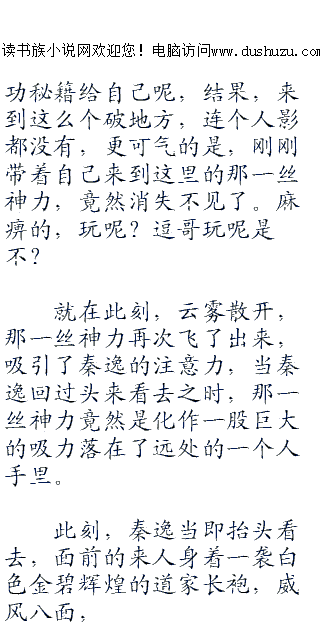 读书族小说网欢迎您！电脑访问www.dushuzu.com
功秘籍给自己呢，结果，来
到这么个破地方，连个人影
都没有，更可气的是，刚刚
带着自己来到这里的那一丝
神力，竟然消失不见了。麻
痹的，玩呢？逗哥玩呢是
不？
就在此刻，云雾散开，
那一丝神力再次飞了出来，
吸引了秦逸的注意力，当秦
逸回过头来看去之时，那一
丝神力竟然是化作一股巨大
的吸力落在了远处的一个人
手里。
此刻，秦逸当即抬头看
去，面前的来人身着一袭白
色金碧辉煌的道家长袍，威
风八面，